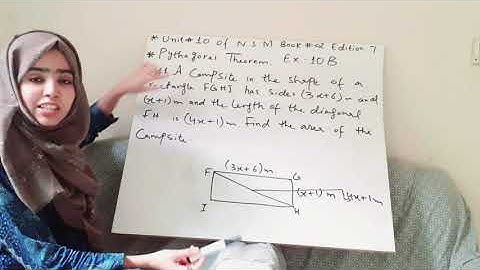 * Unit # 10 of N S M Book # 2 Edition 7
* Pythagoras Theorem Ex. 10B
A Campsite in the shape of a
rectangle FGHI has sides (3x+6)m and
(x+1)m and the length of the diagonal
FH is (4x+1)m Find the area of the
Campsite
(3x+6)m
F G
(x+1)m 4x+1m
I H